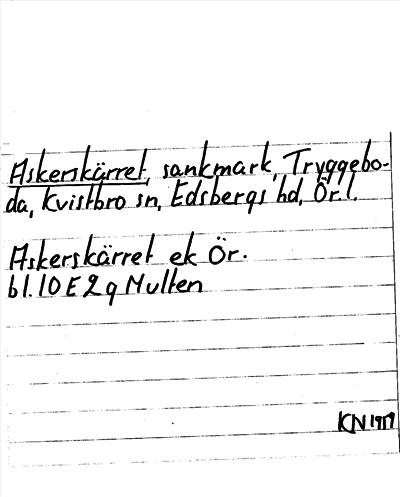 Askerskärret, sankmark, Tryggebo-
da, Kvistbro sn, Edsbergs hd, Ör. l.
Askerskärret ek Ör.
bl. 10 E 2 g Mullen
KN